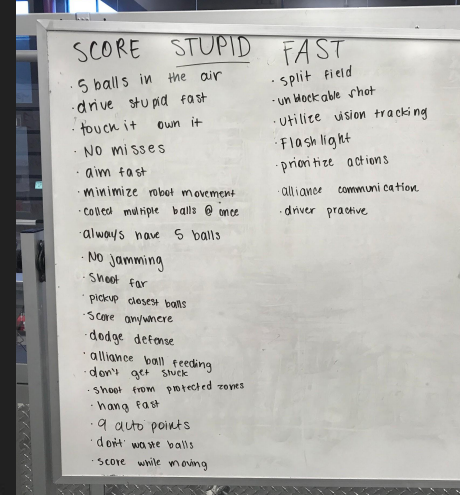 SCORE STUPID FAST
· 5 balls in the air
· drive stupid fast
· touch it own it
· NO misses
· aim fast
· minimize robot movement
· collect multiple balls @ once
· always have 5 balls
· No jamming
· Shoot far
· pickup closest balls
· Score anywhere
· dodge defense
· alliance ball feeding
· don't get stuck
· shoot from protected zones
· hang fast
· 9 auto points
· don't waste balls
· score while moving
· split field
· unblockable shot
· utilize vision tracking
· Flashlight
· prioritize actions
· alliance communication
· driver practive